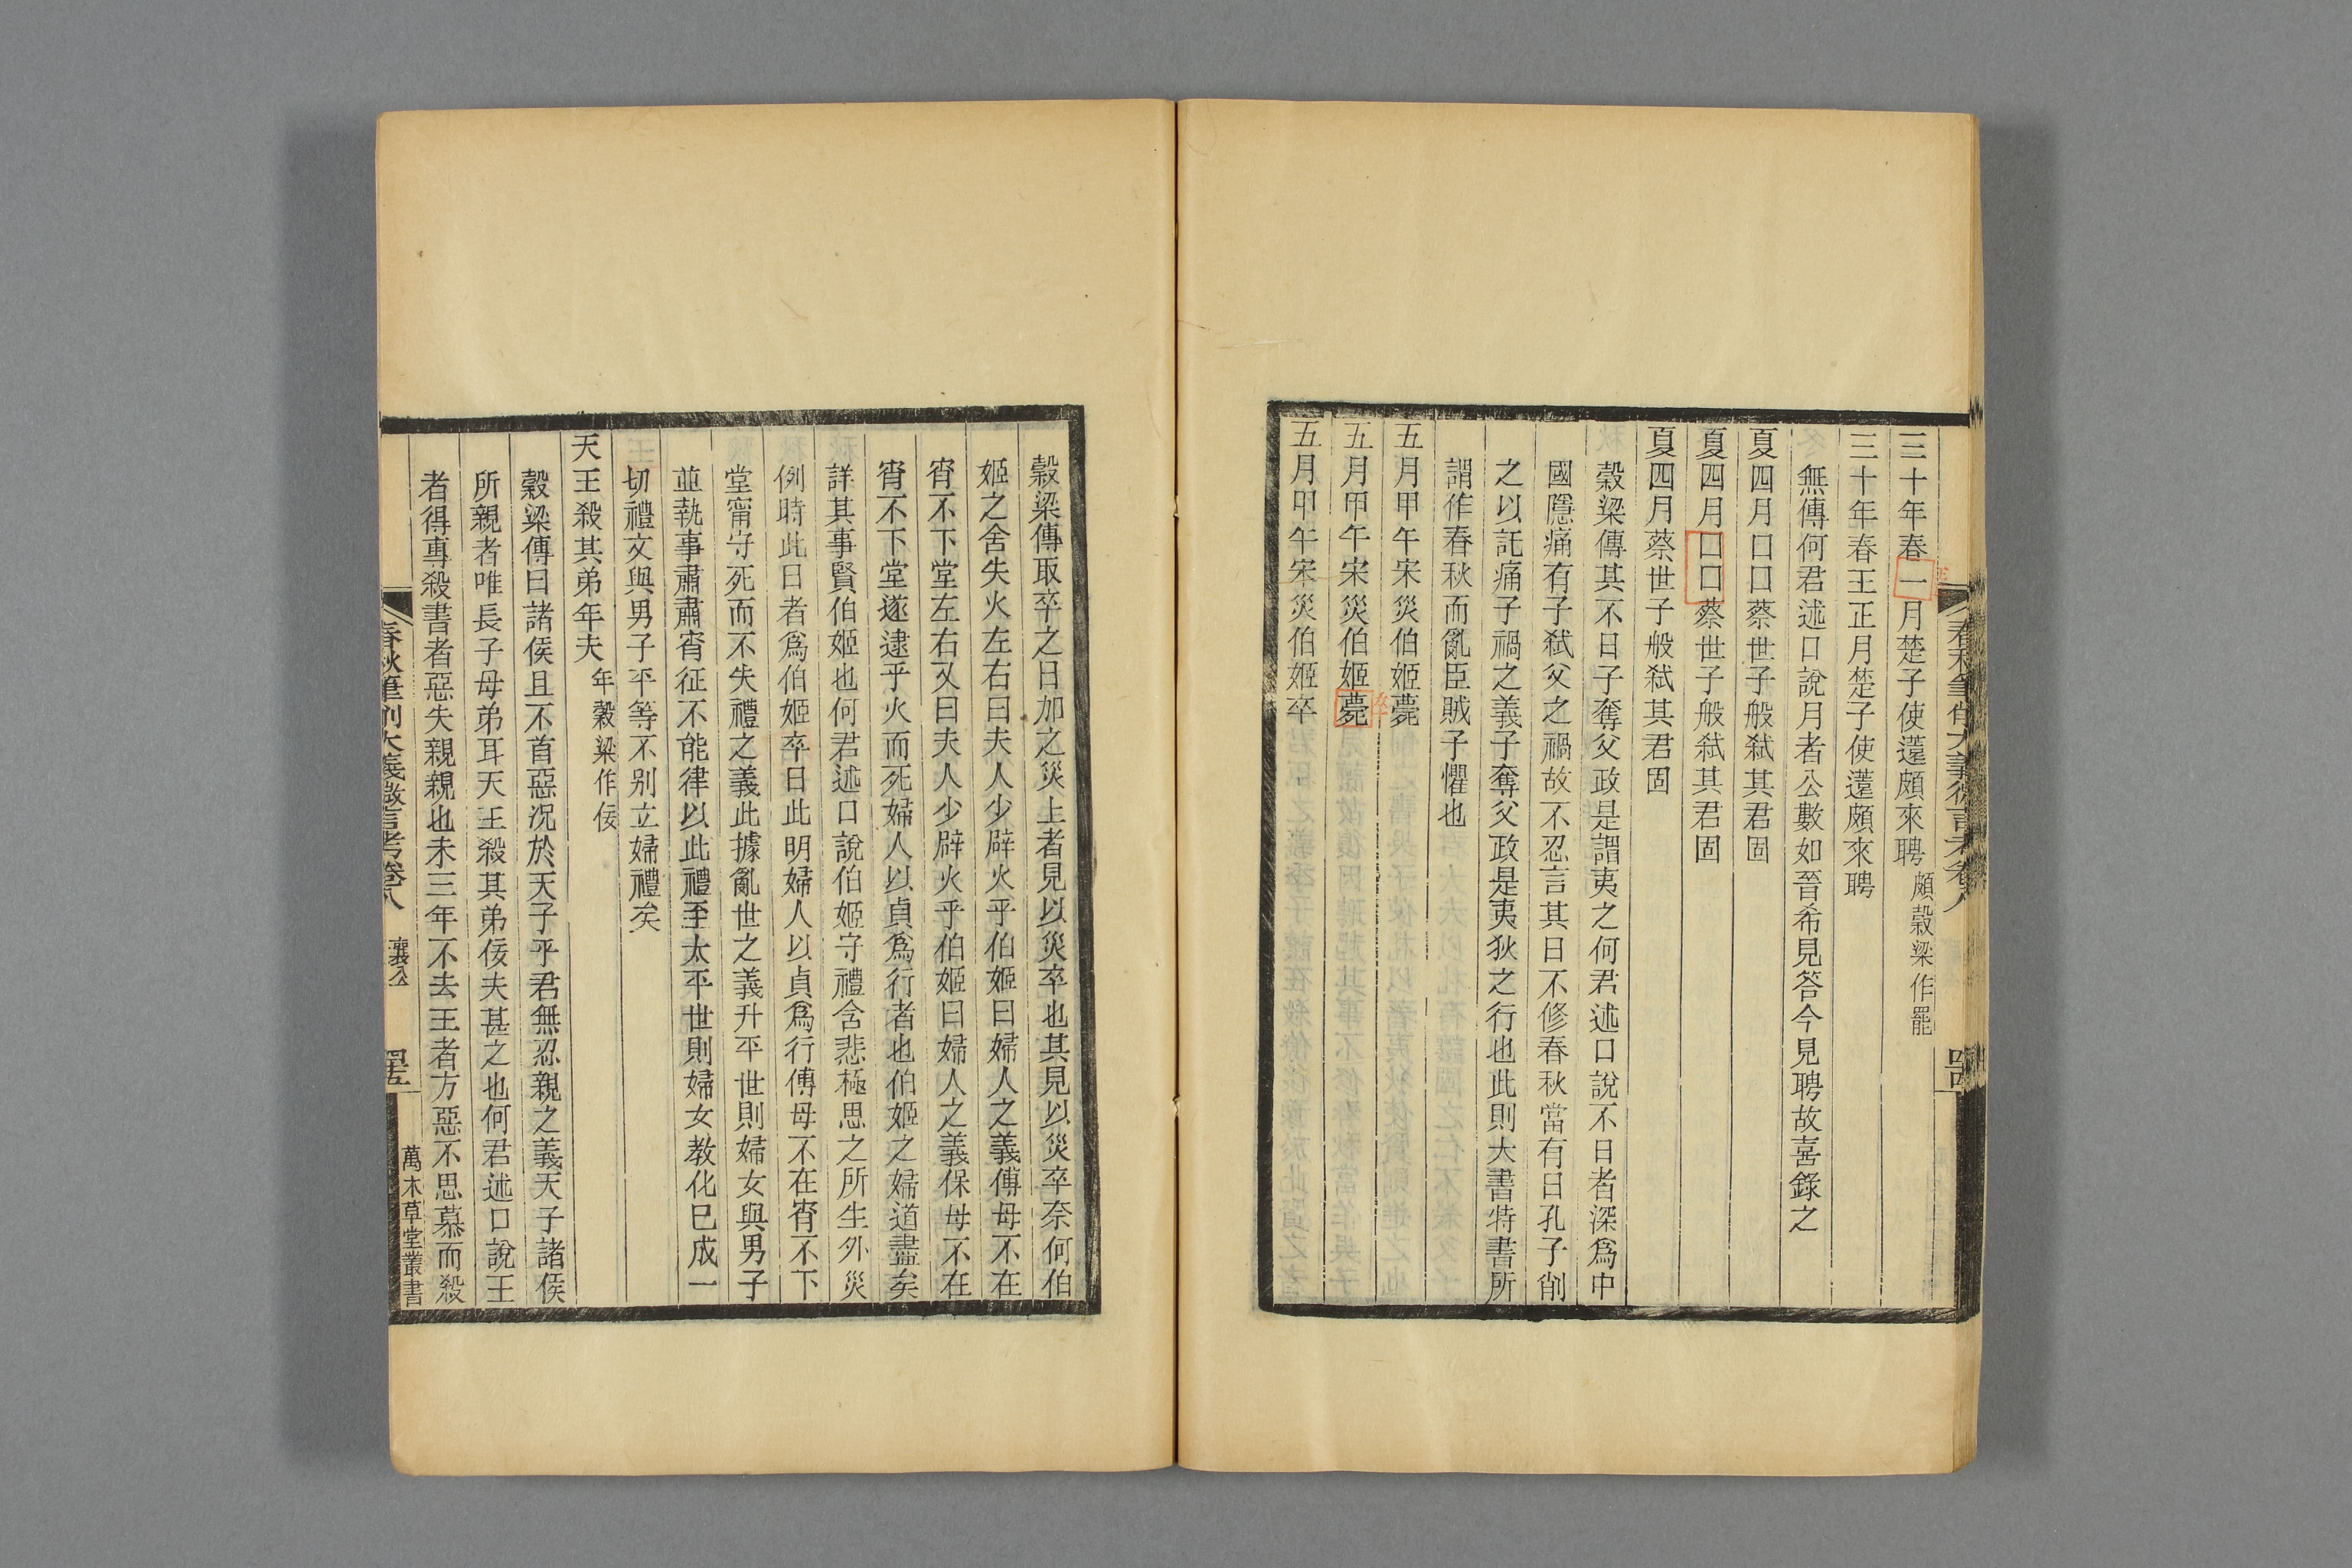 春秋筆削大義微言考卷八
三十年春一月楚子使薳頗來聘頗穀梁作罷
三十年春王正月楚子使薳頗來聘
無傳何君述口說月者公數如晉希見答今見聘故喜錄之
夏四月囗囗蔡世子般弑其君固
夏四月囗囗蔡世子般弑其君固
夏四月蔡世子般弑其君固
穀梁傳其不日子奪父政是謂夷之何君述口說不日者深爲中
國隱痛有子弑父之禍故不忍言其日不修春秋當有日孔子削
之以託痛子禍之義子奪父政是夷狄之行也此則大書特書所
謂作春秋而亂臣賊子懼也
五月甲午宋災伯姬薨
五月甲午宋災伯姬薨
卒
五月甲午宋災伯姬卒
穀梁傳取卒之日加之災上者見以災卒也其見以災卒奈何伯
姬之舍失火左右曰夫人少辟火乎伯姬曰婦人之義傅母不在
宵不下堂左右又曰夫人少辟火乎伯姬曰婦人之義保母不在
宵不下堂遂逮乎火而死婦人以貞爲行者也伯姬之婦道盡矣
詳其事賢伯姬也何君述口說伯姬守禮含悲極思之所生外災
例時此日者爲伯姬卒日此明婦人以貞爲行傅母不在宵不下
堂甯守死而不失禮之義此據亂世之義升平世則婦女與男子
並執事肅肅宵征不能律以此禮至太平世則婦女教化已成一
切禮文與男子平等不别立婦禮矣
天王殺其弟年夫年穀梁作佞
穀梁傳曰諸侯且不首惡况於天子乎君無忍親之義天子諸侯
所親者唯長子母弟耳天王殺其弟佞夫甚之也何君述口說王
者得專殺書者惡失親親也未三年不去王者方惡不思慕而殺
春秋筆削大義微言考卷八 襄公 四五 萬木草堂叢書